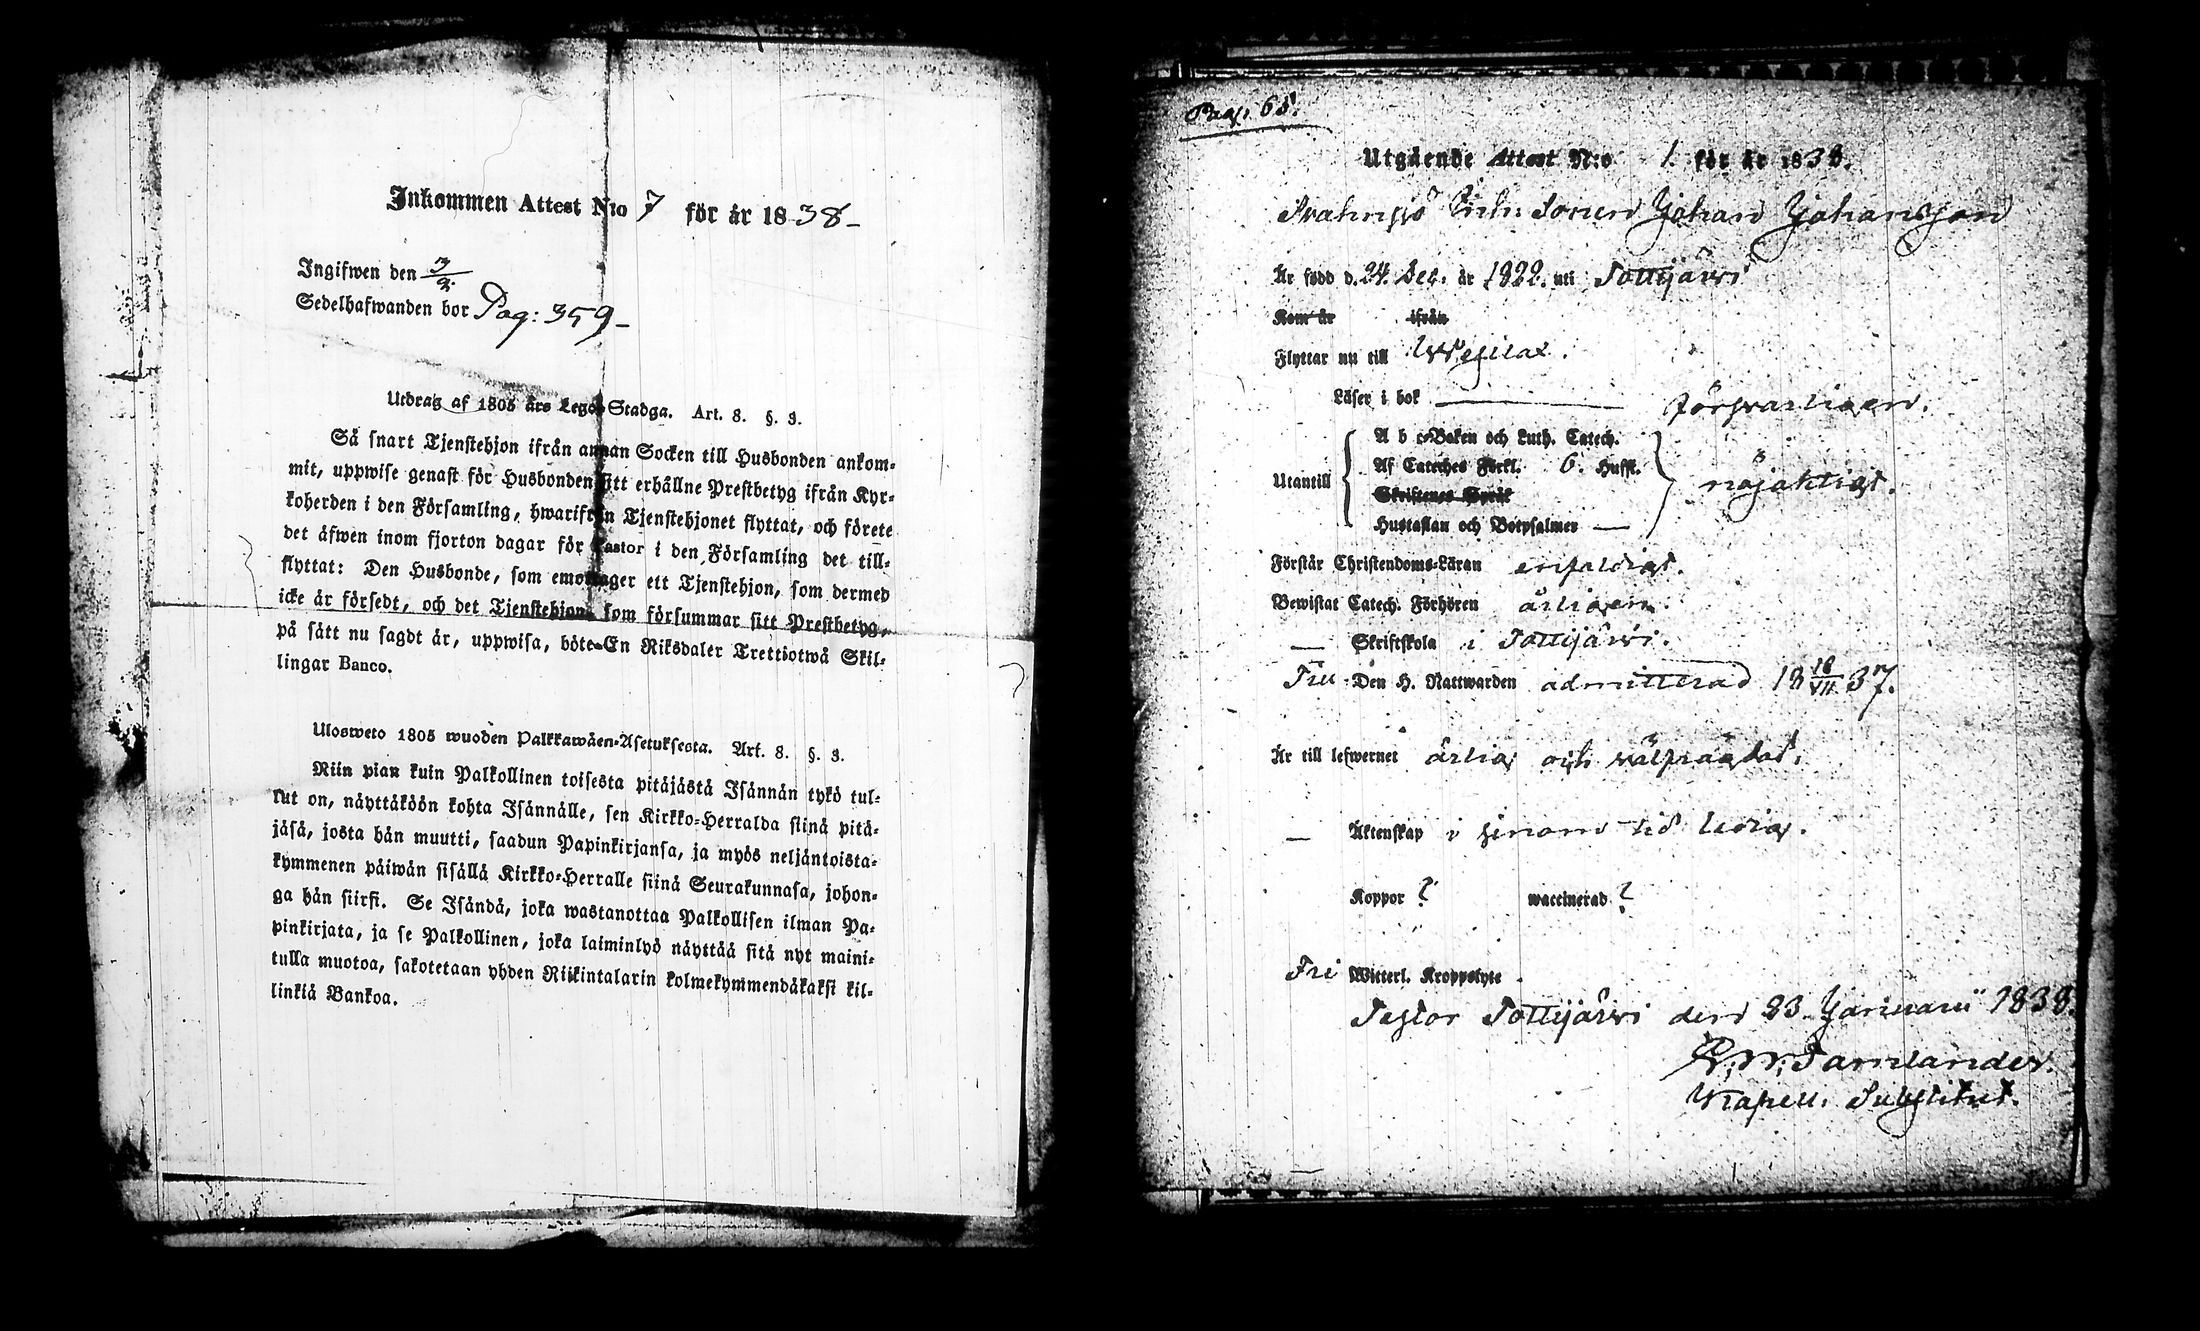 Inkommen Attest N:o 7 för år 1838-
Ingifwen den 3/2.
Sedelhafwanden bor Pag: 359-
Utdrag af 1805 års Lego-Stadga. Art. 8. §. 3.
Så snart Tjenstehjon ifrån annan Socken till Husbonden ankom-
mit, uppwise genast för Husbonden sitt erhållne Prestbetyg ifrån Kyr-
koherden i den Församling, hwarifrån Tjenstehjonet flyttat, och förete
det äfwen inom fjorton dagar för Pastor i den Församling det till-
flyttat: Den Husbonde, som emottager ett Tjenstehjon, som dermed
icke är försedt, och det Tjenstehjon, som försummar sitt Prestbetyg,
på sätt nu sagdt är, uppwisa, böte En Riksdaler Trettiotwå Skil-
lingar Banco.
Ulosweto 1805 wuoden Palkkawäen-Asetuksesta. Art. 8. §. 3.
Niin pian kuin Palkollinen toisesta pitäjästä Isännän tykö tul-
lut on, näyttäköön kohta Isännälle, sen Kirkko-Herralda siinä pitä-
jäsä, josta hän muutti, saadun Papinkirjansa, ja myös neljäntoista-
kymmenen päiwän sisällä Kirkko-Herralle siinä Seurakunnasa, johon-
ga hän siirsi. Se Isändä, joka wastanottaa Palkollisen ilman Pa-
pinkirjata, ja se Palkollinen, joka laiminlyö näyttää sitä nyt maini-
tulla muotoa, sakotetaan yhden Riikintalarin kolmekymmendäkaksi kil-
linkiä Bankoa.
Pag. 65.
Utgående Attest N:o 1. för år 1838.
Sonen Johan Johansson
Är född d. 24. Dec. år 1822. uti Tottijärwi
Kom år ifrån
Flyttar nu till Wesilax.
Läser i bok försvarligen.
Utantill
A b c-Boken och Luth. Catech.
Af Cateches Förkl. 6. Hufst.
Skriftenes Språk
Hustaflan och Botpsalmer —
nöjaktigt.
Förstår Christendoms-Läran enfaldigt.
Bewistat Catech. Förhören årligen.
— Skriftskola i Tottijärwi.
Den H. Nattwarden admitterad 18 16/VII 37.
Är till lefwernet ärlig och välfrägdad.
— Äktenskap i ledig.
Koppor ? waccinerad ?
Fri Witterl. Kroppslyte.
Testor Tottijärwi den 23 Januarii 1838.
Kapell. Substitut.